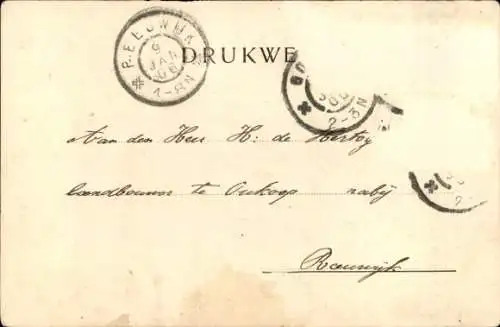 REEUWIJK
9
JAN
06
1-8N
DRUKWE
GO
2-3N
Aan den Heer H: de Hertog
Landbouwer te Oukoop nabij
Reeuwijk